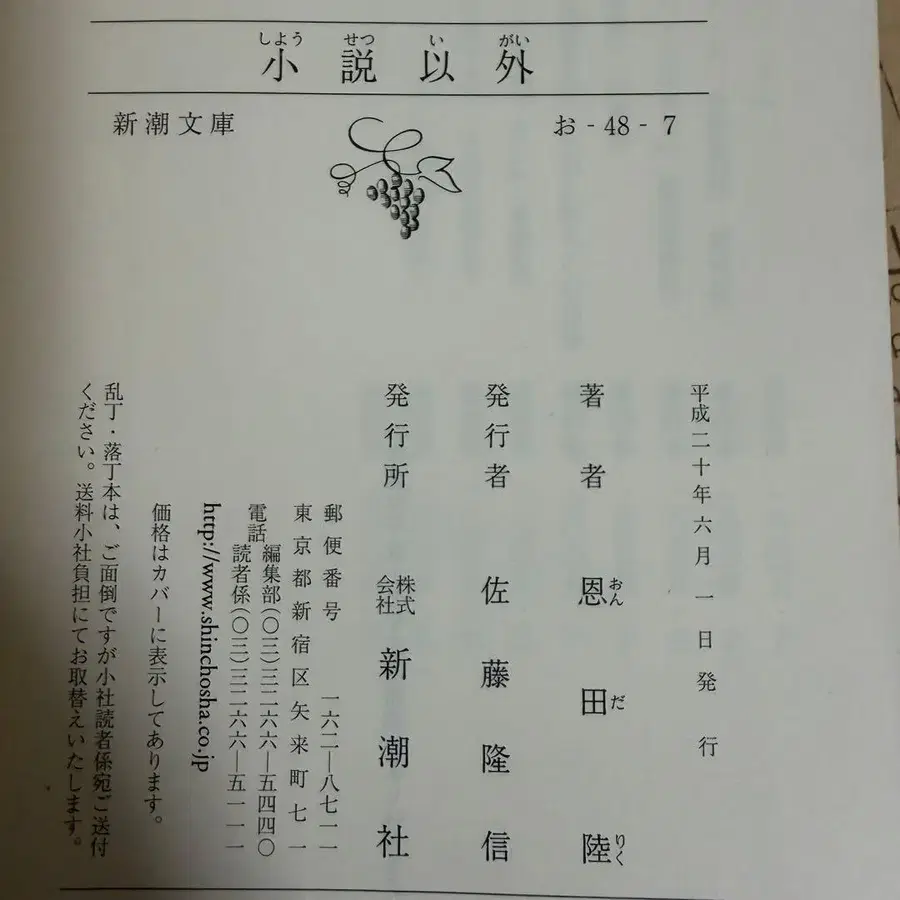 小説以外
しよう せつ い がい
新潮文庫
お-48-7
平成二十年六月一日発行
著者 恩田陸
おん だ りく
発行者 佐藤隆信
発行所 株式会社 新潮社
郵便番号 一六二―八七一一
東京都新宿区矢来町七一
電話 編集部(〇三)三二六六―五四四〇
読者係(〇三)三二六六―五一一一
http://www.shinchosha.co.jp
価格はカバーに表示してあります。
乱丁・落丁本は、ご面倒ですが小社読者係宛ご送付
ください。送料小社負担にてお取替えいたします。